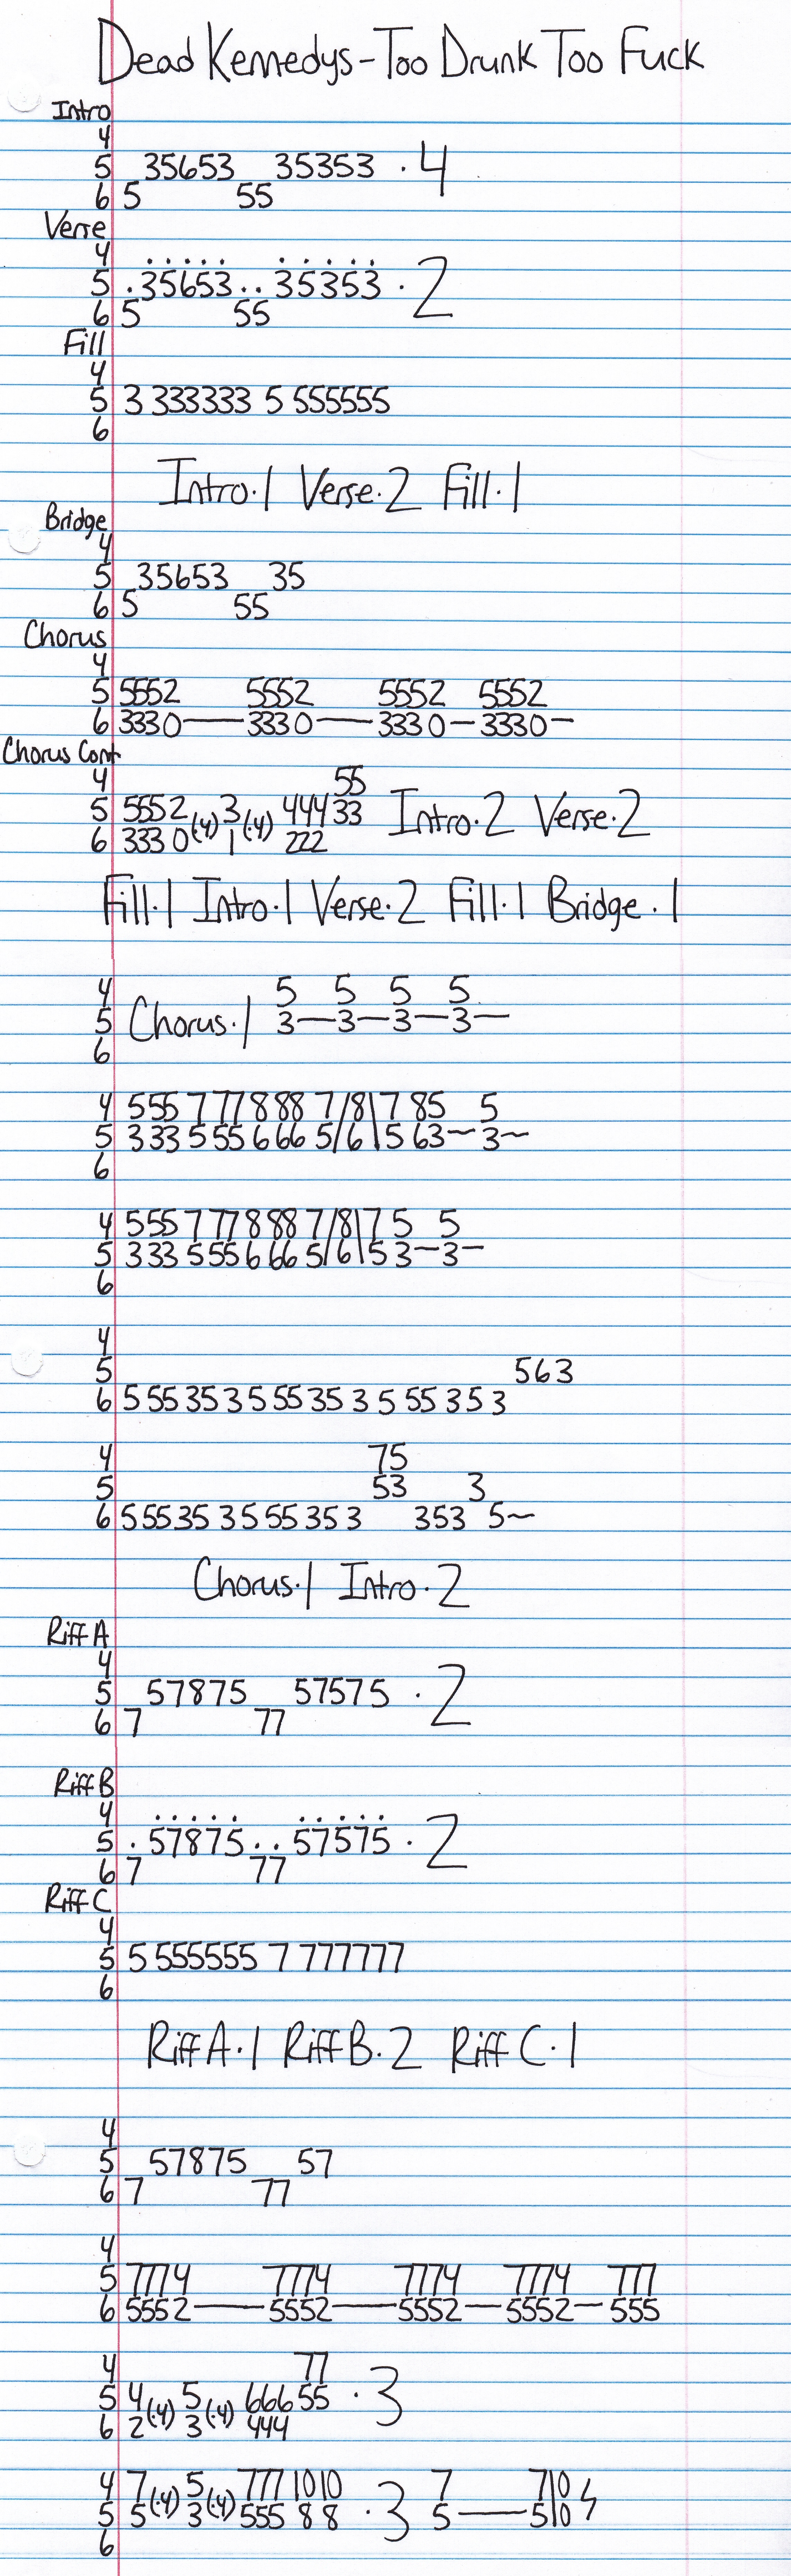 Dead Kennedys - Too Drunk Too Fuck
Intro
4
5 35653 35353 . 4
6 5 55
Verse
4 . . . . . . . . . .
5 . 35653 . . 35353 . 2
6 5 55
Fill
4
5 3 333333 5 555555
6
Intro . 1 Verse . 2 Fill . 1
Bridge
4
5 35653 35
6 5 55
Chorus
4
5 5552 5552 5552 5552
6 3330 — 3330 — 3330 — 3330 —
Chorus Cont
4 55
5 5552 (.4) 3 (.4) 444 33 Intro . 2 Verse . 2
6 3330 1 222
Fill . 1 Intro . 1 Verse . 2 Fill . 1 Bridge . 1
4 5 5 5 5
5 Chorus . 1 3 — 3 — 3 — 3 —
6
4 555 7 77 888 7/8\7 85 5
5 333 5 55 666 5/6\5 63 ~ 3 ~
6
4 555 7 77 888 7/8\7 5 5
5 333 5 55 666 5/6\5 3 — 3 —
6
4
5 563
6 5 55 35 3 5 55 35 3 5 55 35 3
4 75
5 53 3
6 5 55 35 3 5 55 35 3 353 5 ~
Chorus . 1 Intro . 2
Riff A
4
5 57875 57575 . 2
6 7 77
Riff B
4 . . . . . . . . . .
5 . 57875 . . 57575 . 2
6 7 77
Riff C
4
5 5 555555 7 777777
6
Riff A . 1 Riff B . 2 Riff C . 1
4
5 57875 57
6 7 77
4
5 7774 7774 7774 7774 777
6 5552 — 5552 — 5552 — 5552 — 555
4 77
5 4 (.4) 5 (.4) 666 55 . 3
6 2 3 444
4 7 5 777 1010 7 7 10
5 5 (.4) 3 (.4) 555 8 8 . 3 5 — 5 10
6